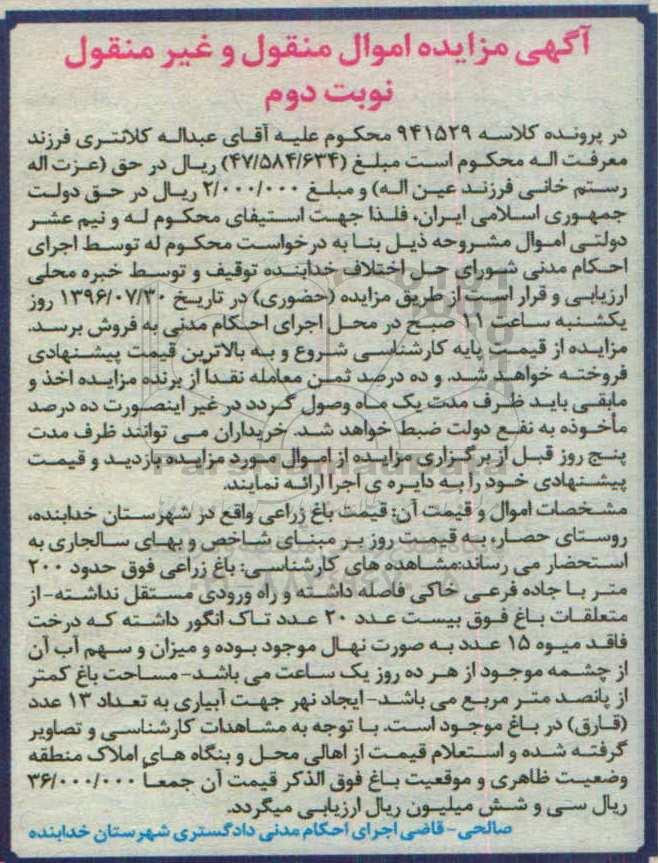 آگهی مزایده اموال منقول و غیر منقول
نوبت دوم
در پرونده کلاسه ۹۴۱۵۲۹ محکوم علیه آقای عبداله کلانتری فرزند
معرفت اله محکوم است مبلغ (۴۷/۵۸۴/۶۳۴) ریال در حق (عزت اله
رستم خانی فرزند عین اله) و مبلغ ۲/۰۰۰/۰۰۰ ریال در حق دولت
جمهوری اسلامی ایران، فلذا جهت استیفای محکوم له و نیم عشر
دولتی اموال مشروحه ذیل بنا به درخواست محکوم له توسط اجرای
احکام مدنی شورای حل اختلاف خدابنده توقیف و توسط خبره محلی
ارزیابی و قرار است از طریق مزایده (حضوری) در تاریخ ۱۳۹۶/۰۷/۳۰ روز
یکشنبه ساعت ۱۱ صبح در محل اجرای احکام مدنی به فروش برسد.
مزایده از قیمت پایه کارشناسی شروع و به بالاترین قیمت پیشنهادی
فروخته خواهد شد. و ده درصد ثمن معامله نقدا از برنده مزایده اخذ و
مابقی باید ظرف مدت یک ماه وصول گردد در غیر اینصورت ده درصد
مأخوذه به نفع دولت ضبط خواهد شد. خریداران می توانند ظرف مدت
پنج روز قبل از برگزاری مزایده از اموال مورد مزایده بازدید و قیمت
پیشنهادی خود را به دایره ی اجرا ارائه نمایند.
مشخصات اموال و قیمت آن: قیمت باغ زراعی واقع در شهرستان خدابنده،
روستای حصار، به قیمت روز بر مبنای شاخص و بهای سالجاری به
استحضار می رساند:مشاهده های کارشناسی: باغ زراعی فوق حدود ۲۰۰
متر با جاده فرعی خاکی فاصله داشته و راه ورودی مستقل نداشته-از
متعلقات باغ فوق بیست عدد ۲۰ عدد تاک انگور داشته که درخت
فاقد میوه ۱۵ عدد به صورت نهال موجود بوده و میزان و سهم آب آن
از چشمه موجود از هر ده روز یک ساعت می باشد- مساحت باغ کمتر
از پانصد متر مربع می باشد- ایجاد نهر جهت آبیاری به تعداد ۱۳ عدد
(قارق) در باغ موجود است. با توجه به مشاهدات کارشناسی و تصاویر
گرفته شده و استعلام قیمت از اهالی محل و بنگاه های املاک منطقه
وضعیت ظاهری و موقعیت باغ فوق الذکر قیمت آن جمعاً ۳۶/۰۰۰/۰۰۰
ریال سی و شش میلیون ریال ارزیابی میگردد.
صالحی- قاضی اجرای احکام مدنی دادگستری شهرستان خدابنده